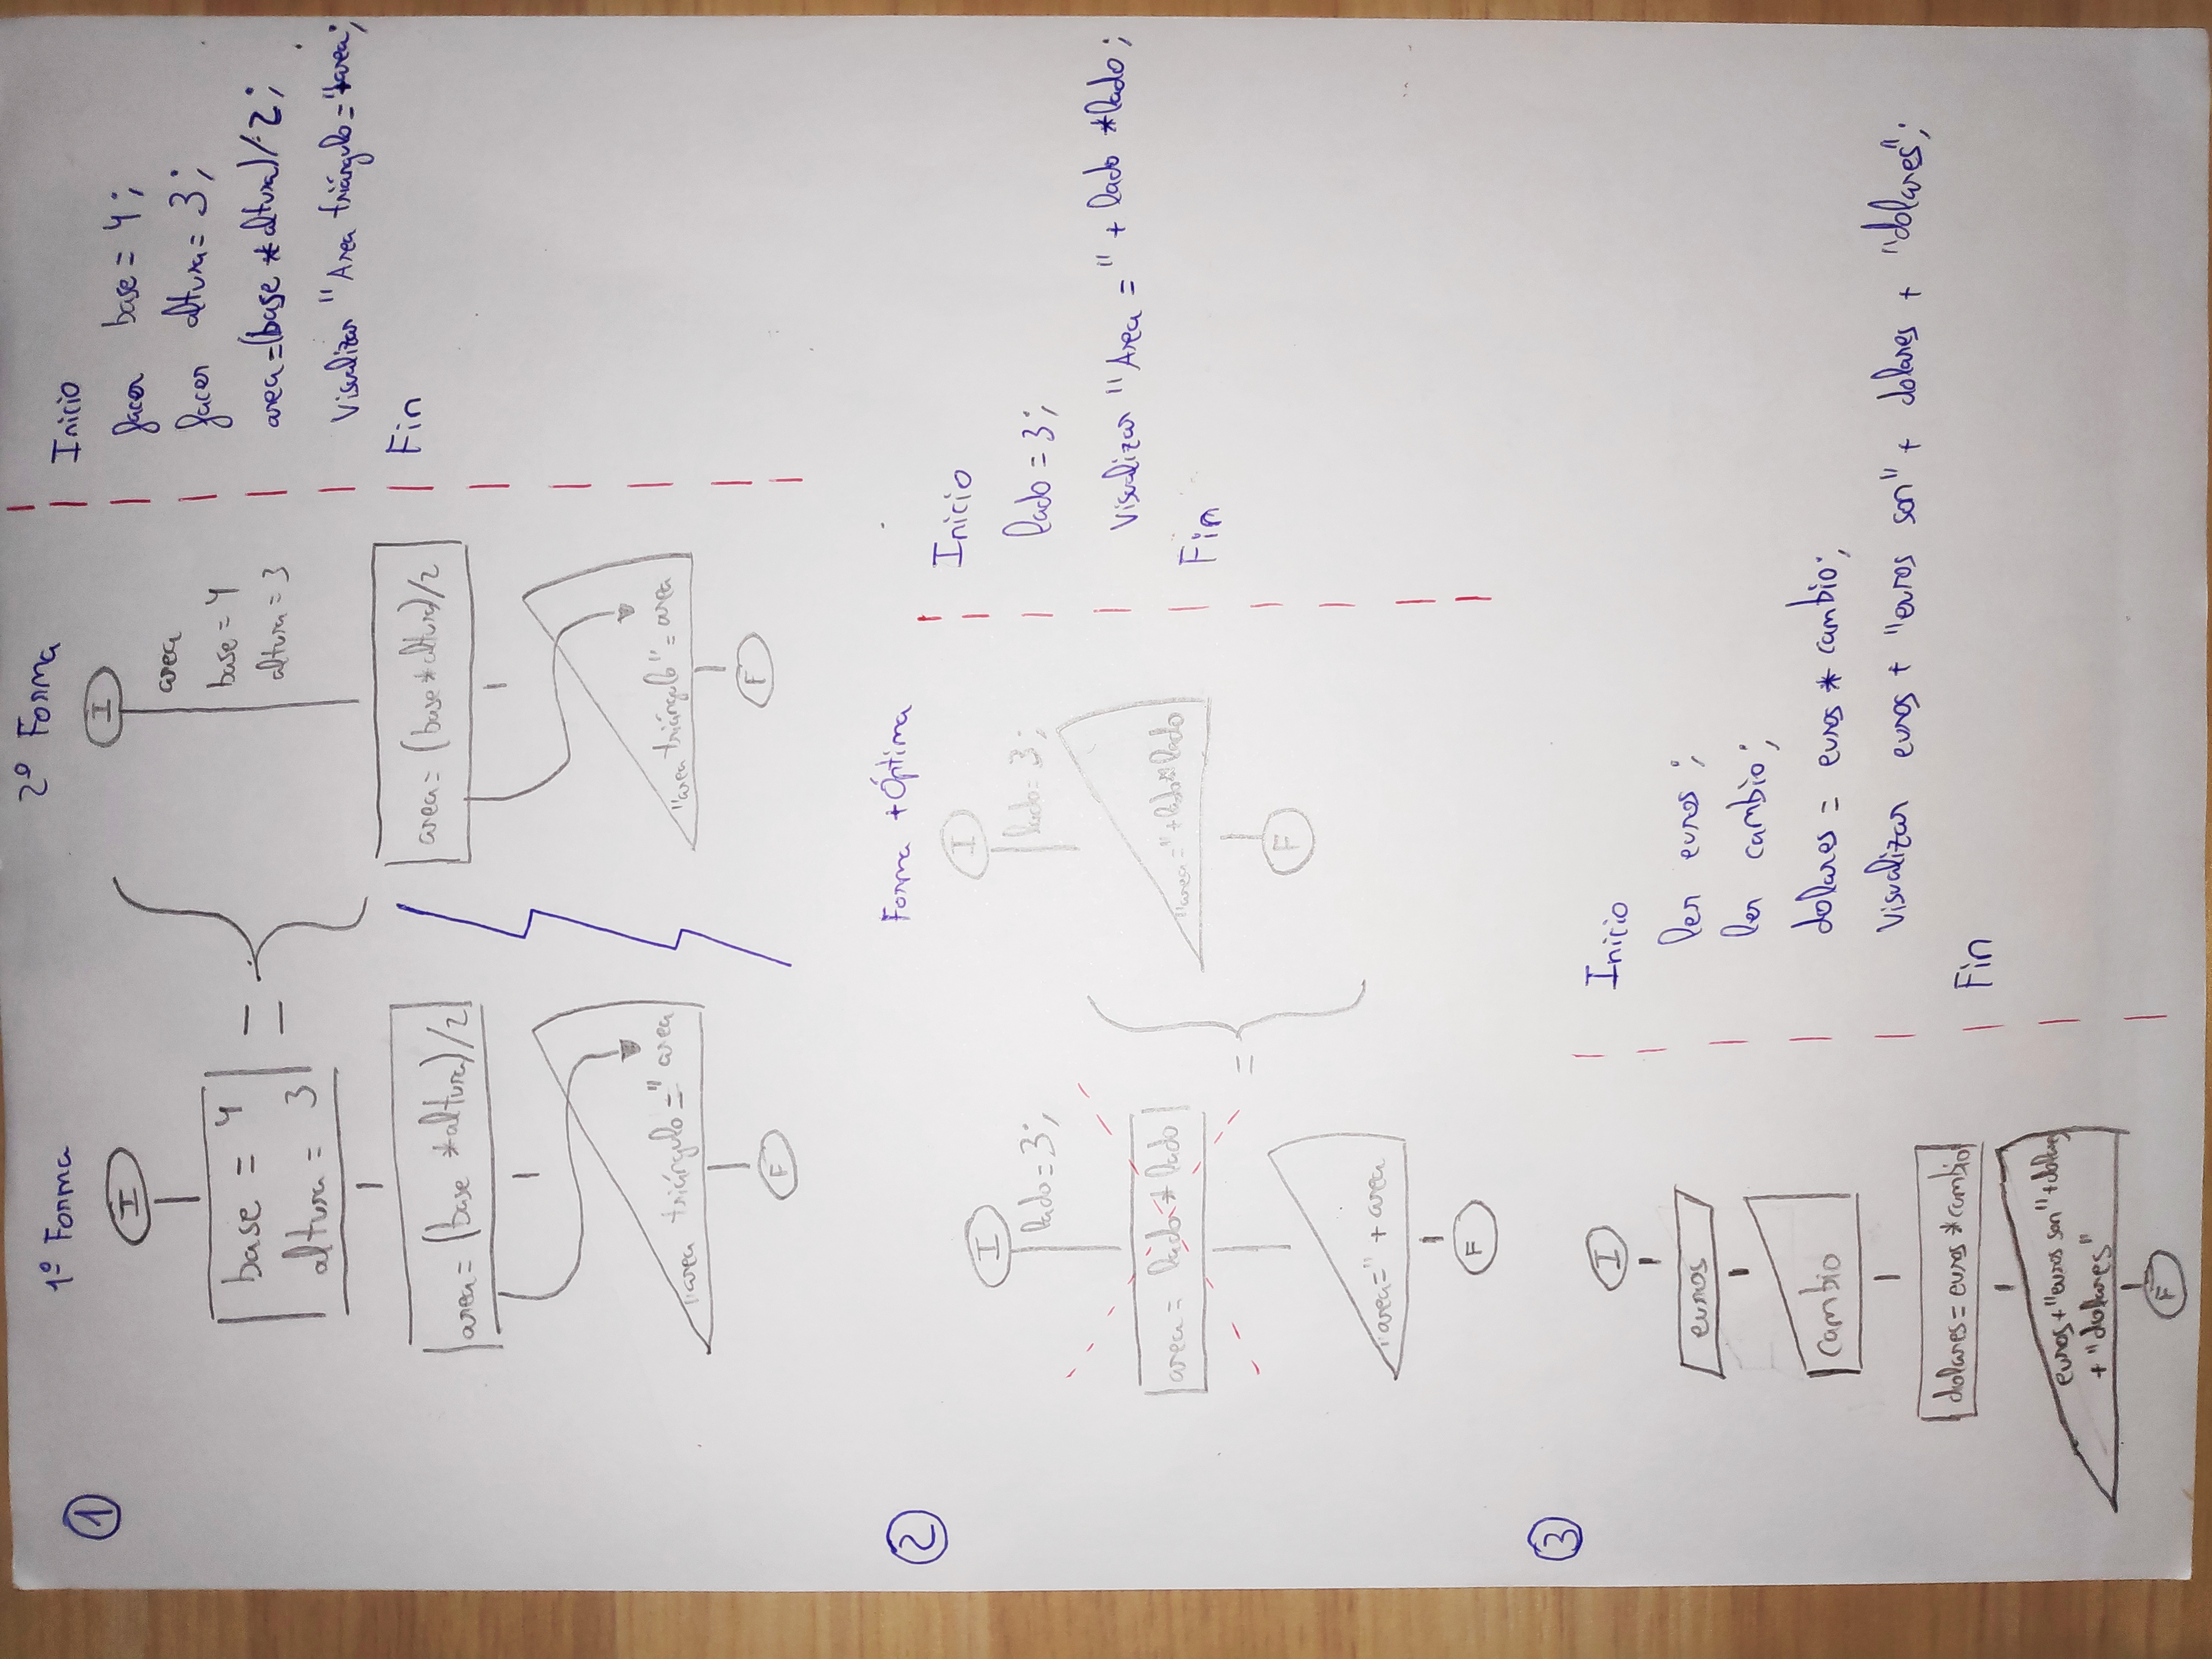 1
1º Forma
I
base = 4
altura = 3
=
area = (base * altura)/2
"area triángulo =" area
F
2º Forma
I
area
base = 4
altura = 3
area = (base * altura)/2
"area triángulo" = area
F
Inicio
facer base = 4;
facer altura = 3;
area = (base * altura)/2;
Visualizar "Area triángulo = "+area;
Fin
2
I
lado = 3;
area = lado * lado
"area=" + area
F
=
Forma + Óptima
I
lado = 3;
"area=" + lado*lado
F
Inicio
lado = 3;
Visualizar "Area = " + lado * lado;
Fin
3
I
euros
cambio
dolares = euros * cambio
euros + "euros son" + dolares
+ "dolares"
F
Inicio
ler euros;
ler cambio;
dolares = euros * cambio;
Visualizar euros + "euros son" + dolares + "dolares";
Fin